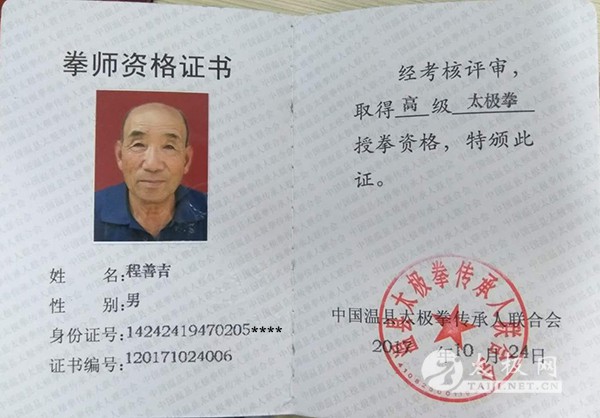 拳师资格证书
姓 名:程善吉
性 别:男
身份证号:14242419470205****
证书编号:120171024006
经考核评审,
取得高级太极拳
授拳资格,特颁此
证。
温县太极拳传承人联合会
中国温县太极拳传承人联合会
2017年10月24日
太极网
TAIJI.NET.CN